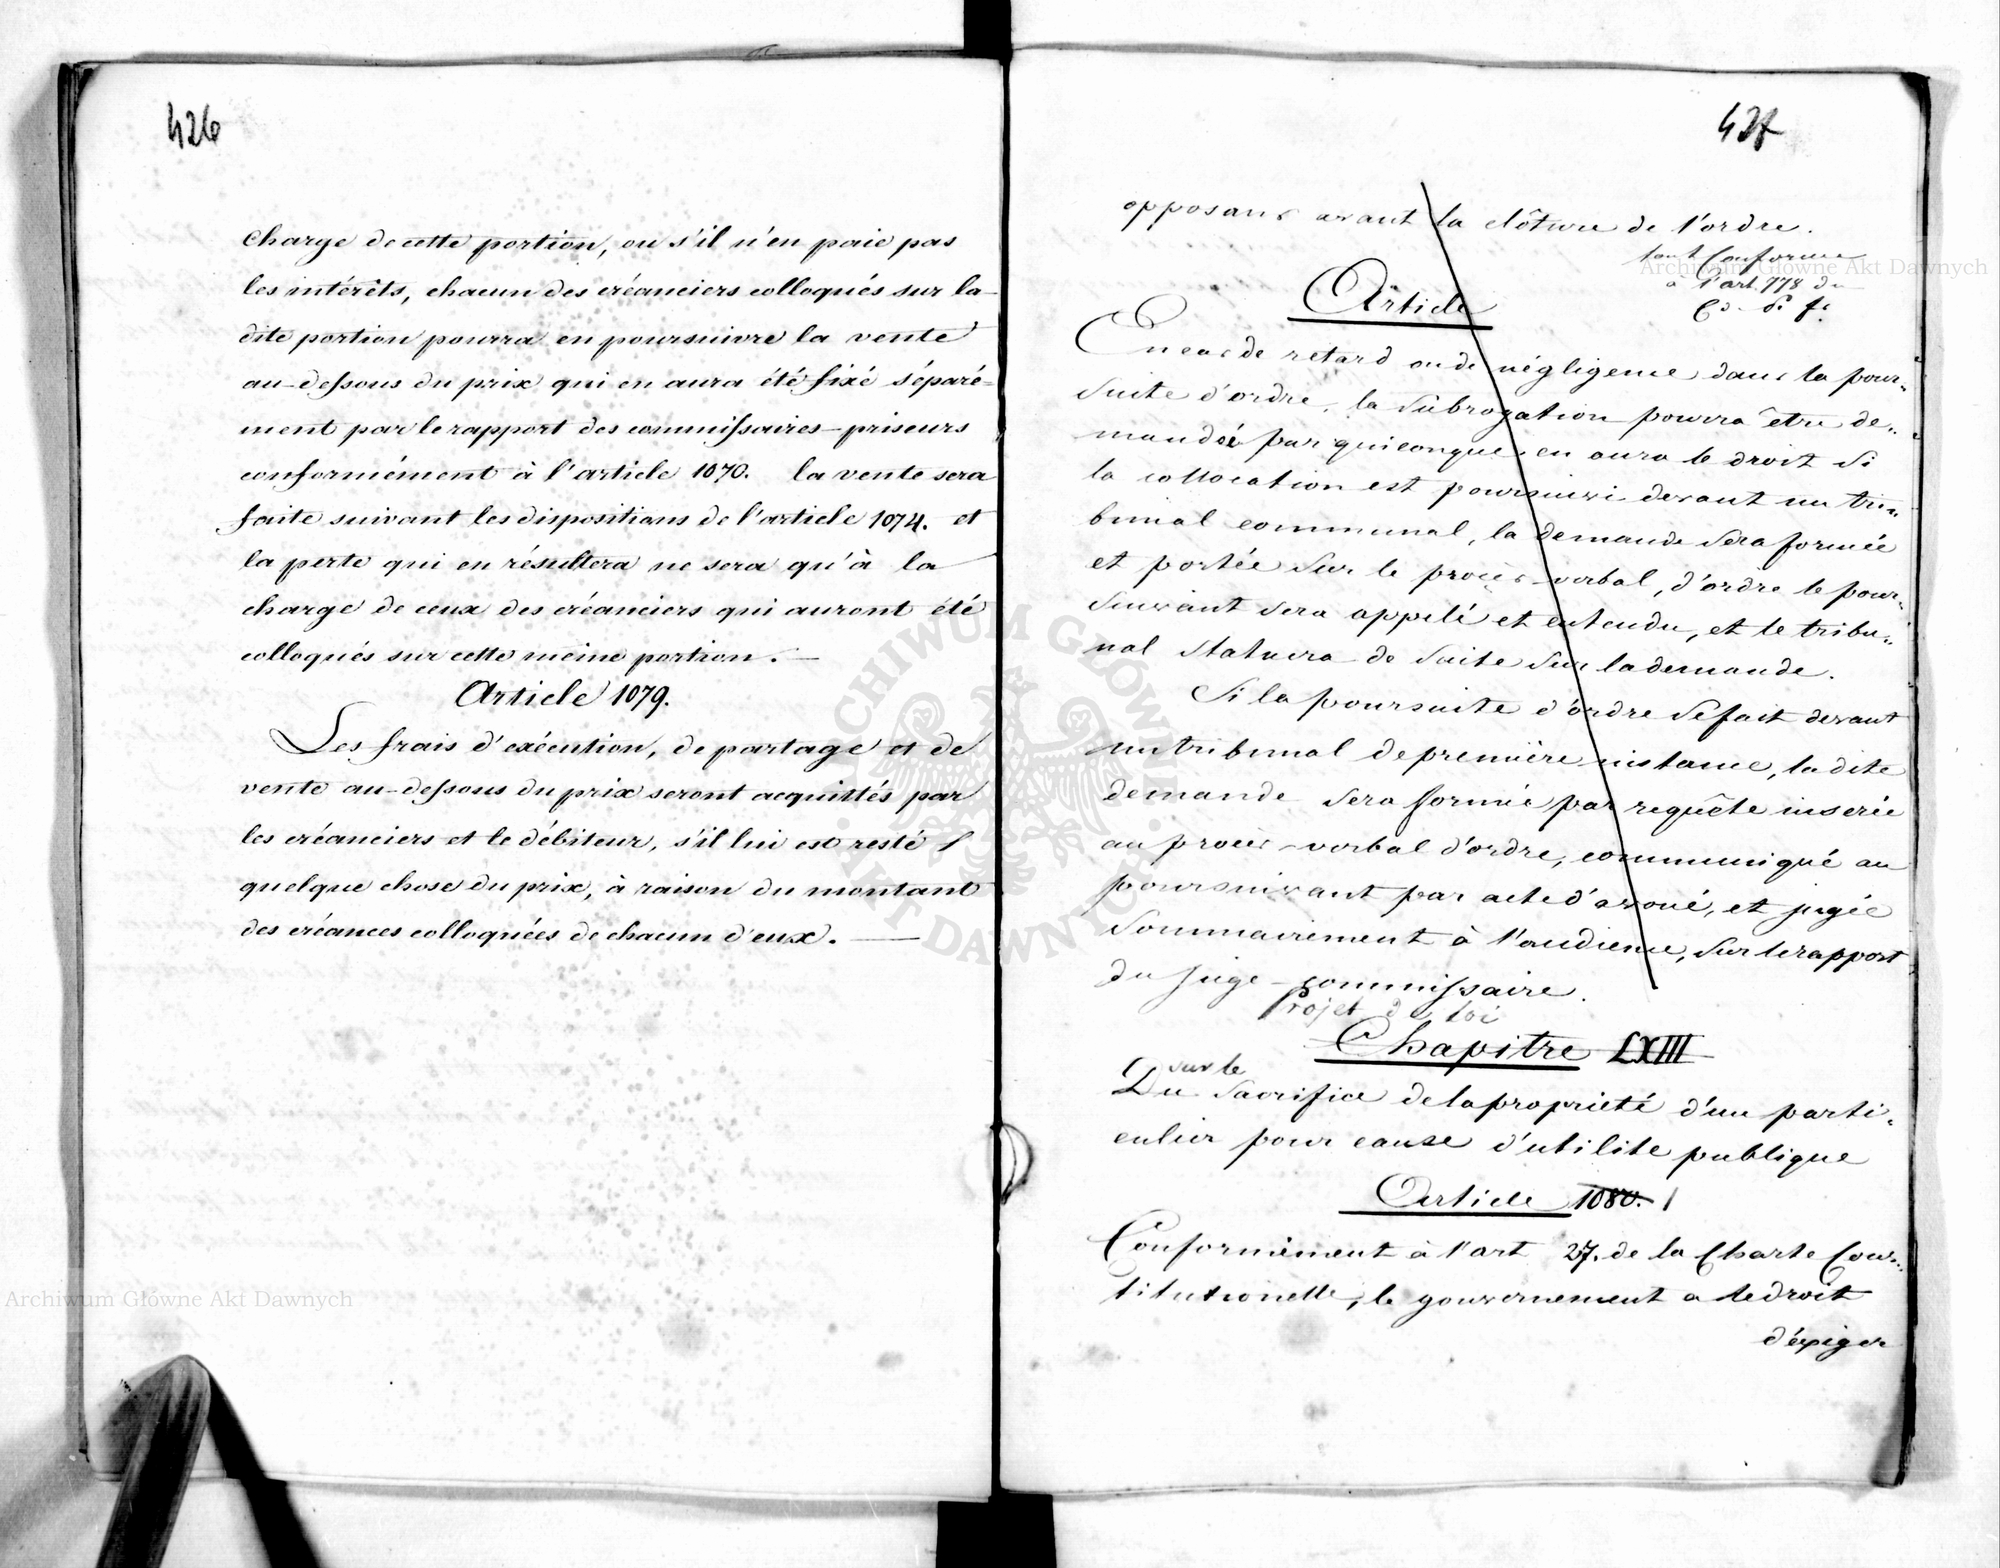 426
charge de cette portion, ou s'il n'en paie pas
les intérêts, chacun des créanciers colloqués sur la
dite portion pourra en poursuivre la vente
au-dessous du prix qui en aura été fixé séparé-
ment par le rapport des commissaires-priseurs
conformément à l'article 1070. la vente sera
faite suivant les dispositions de l'article 1074. et
la perte qui en résultera ne sera qu'à la
charge de ceux des créanciers qui auront été
colloqués sur cette même portion.
Article 1079.
Les frais d'exécution, de partage et de
vente au-dessous du prix seront acquittés par
les créanciers et le débiteur, s'il lui est resté
quelque chose du prix, à raison du montant
des créances colloquées de chacun d'eux.
427
opposans avant la clôture de l'ordre.
tout Conforme
à l'art. 778 du
C. d. P. fr.
Article
En cas de retard ou de négligence dans la pour-
suite d'ordre, la subrogation pourra être de-
mandée par quiconque en aura le droit si
la collocation est poursuivi devant un tri-
bunal communal, la demande sera formée
et portée sur le procès-verbal, d'ordre le pour-
suivant sera appelé et entendu, et le tribu-
nal statuera de suite sur la demande.
Si la poursuite d'ordre se fait devant
un tribunal de première instance, la dite
demande sera formée par requête inserée
au procès-verbal d'ordre, communiqué au
poursuivant par acte d'avoué, et jugée
sommairement à l'audience, sur le rapport
du juge-commissaire.
Projet de loi
Chapitre LXIII
sur le
Du Sacrifice de la propriété d'un parti-
culier pour cause d'utilité publique
Article 1080. 1
Conformément à l'art 27. de la Charte Cons-
titutionelle, le gouvernement a le droit
d'exiger
Archiwum Główne Akt Dawnych
Archiwum Główne Akt Dawnych
ARCHIWUM GŁÓWNE AKT DAWNYCH